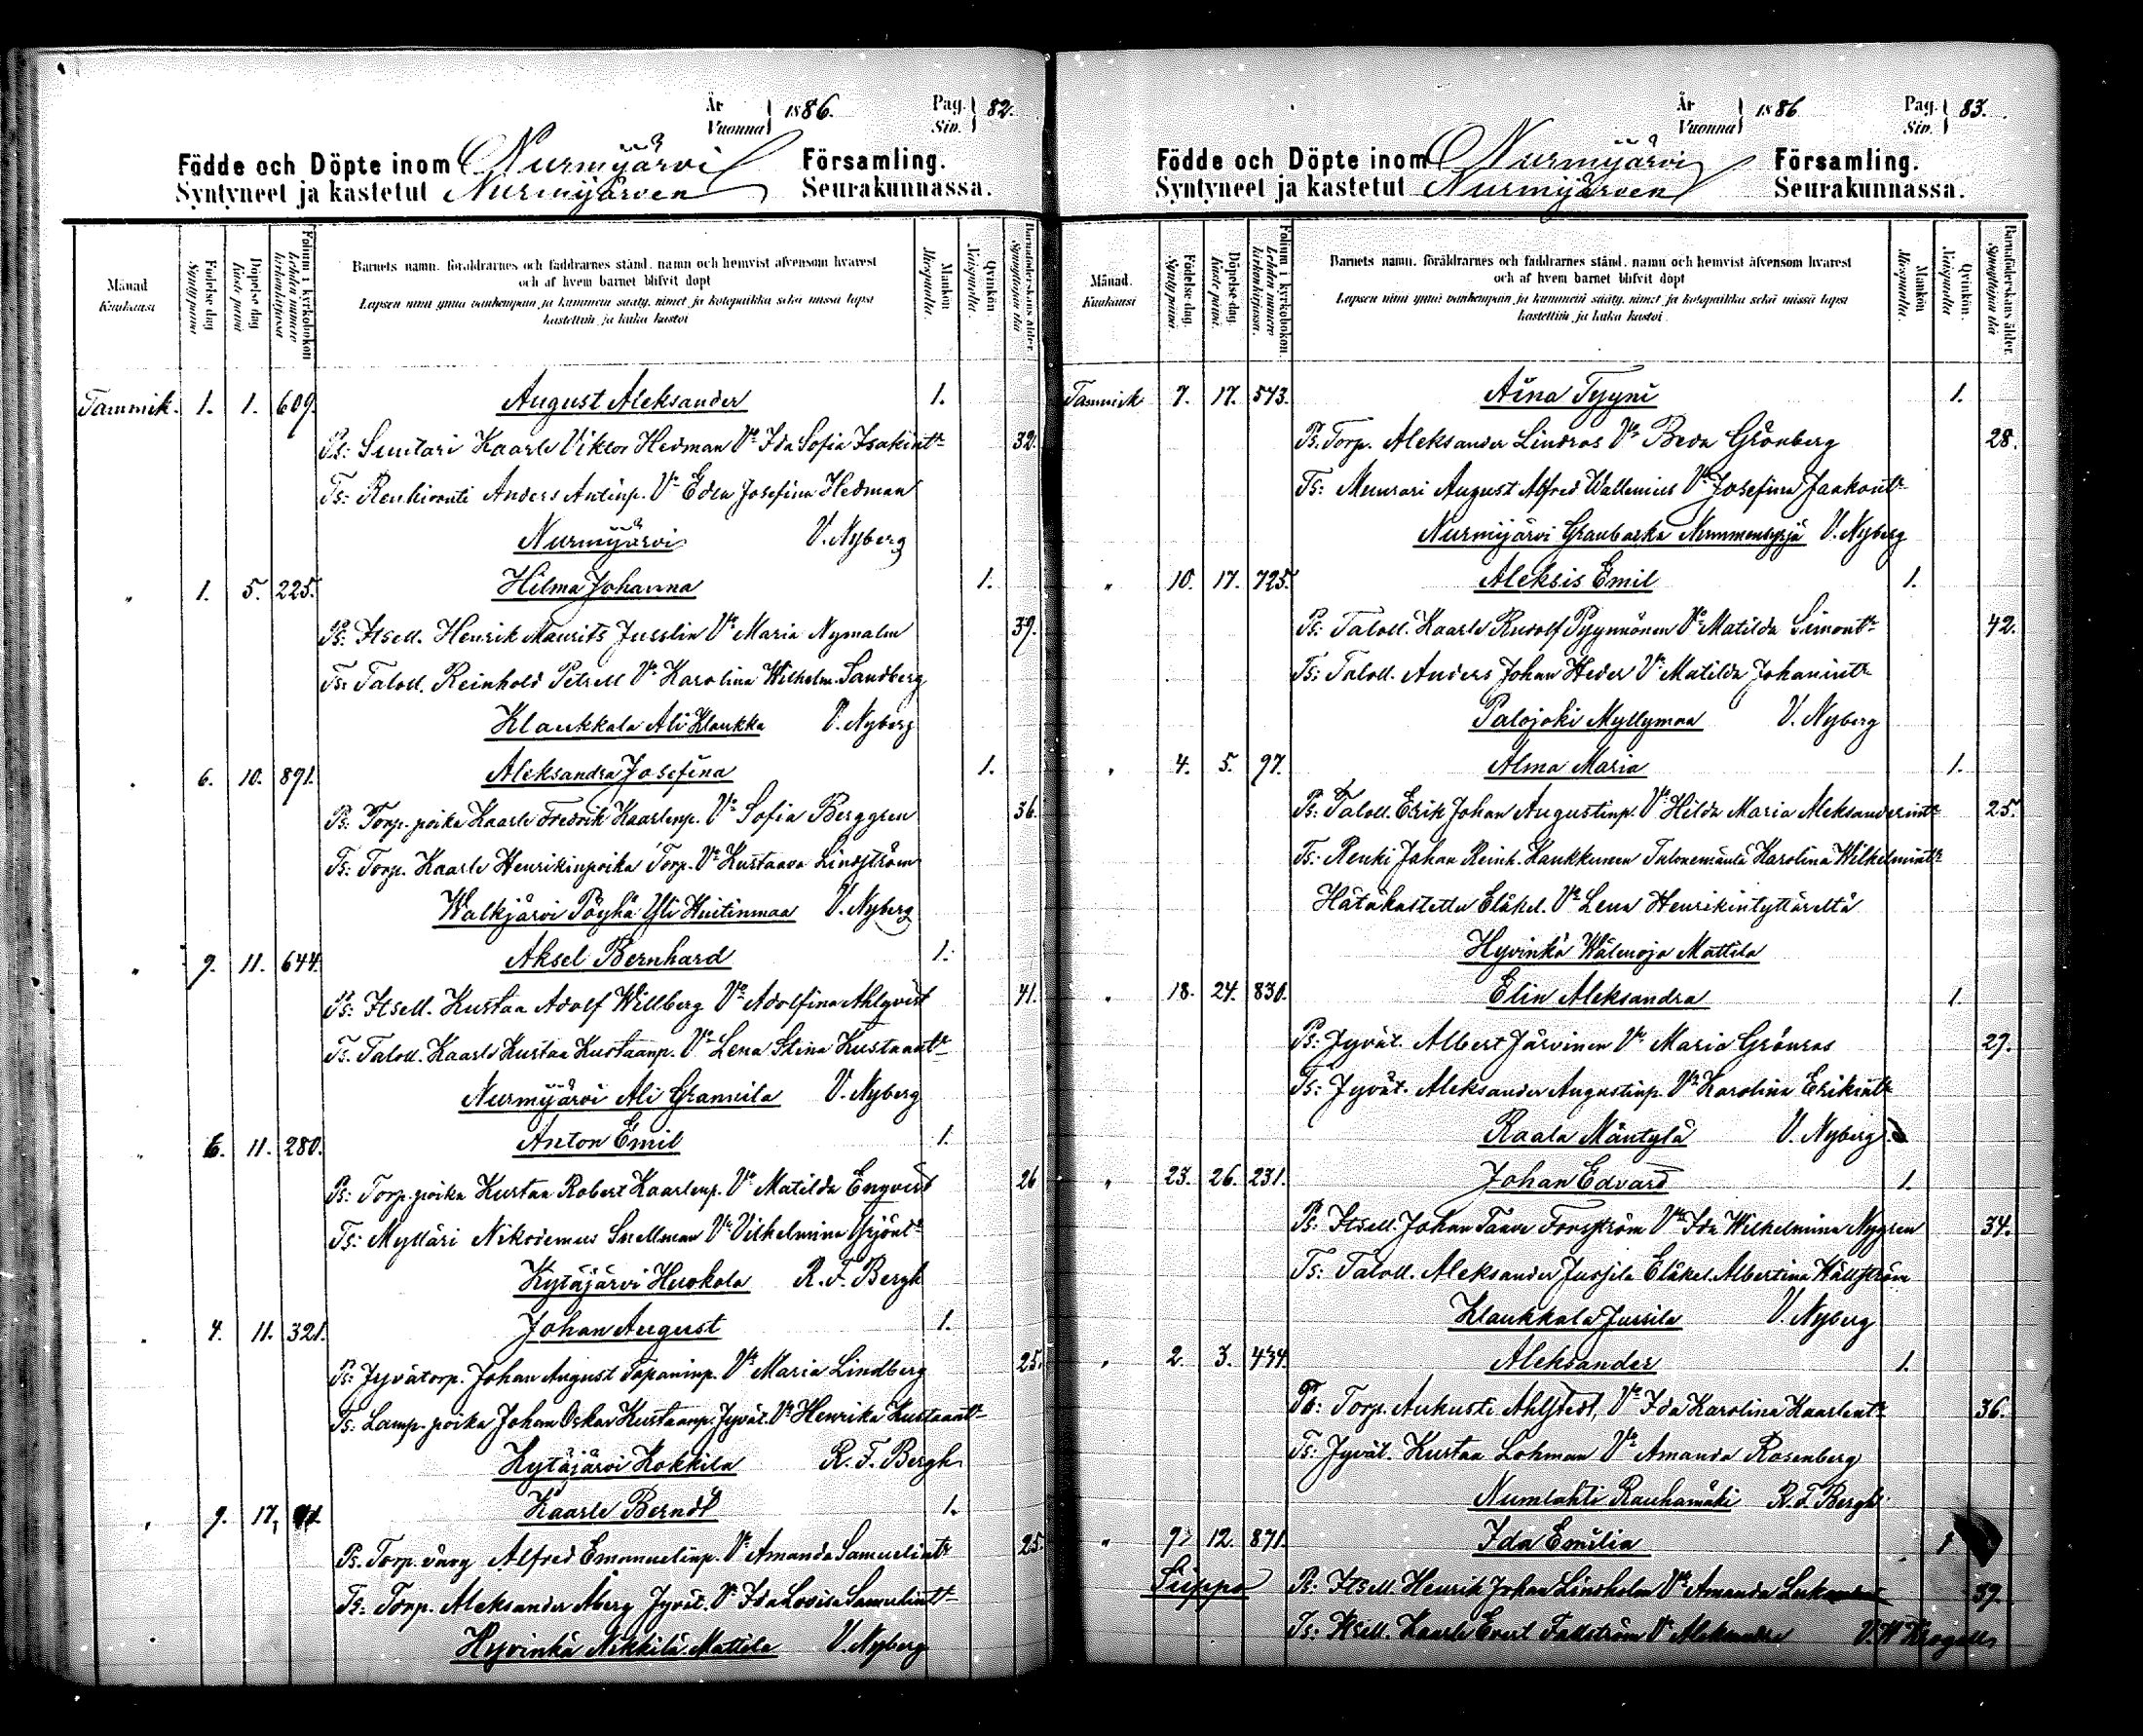 År
Vuonna 1886. Pag. Siv. 82.
Födde och Döpte inom Nurmijärvi Församling.
Syntyneet ja kastetut Nurmijärven Seurakunnassa.
Månad Kuukausi
Födelse-dag Syntymä päivä
Döpelse-dag Kaste päivä
Folium i kyrkoboken Lehden numero kirkonkirjassa
Barnets namn, föräldrarnes och faddrarnes stånd, namn och hemvist äfvensom hvarest
och af hvem barnet blifvit döpt
Lapsen nimi ynnä vanhempain ja kummein sääty, nimet ja kotopaikka sekä missä lapsi
kastettiin ja kuka kastoi
Mankön Miespuolta.
Qvinkön. Naispuolta.
Barnaföderskans ålder. Synnyttäjän ikä
Tammik. 1. 1. 609. August Aleksander 1.
Ps: Suutari Kaarle Viktor Hedman Vo Ida Sofia Isakintr 32.
Ts: Renkivouti Anders Antinp. Vo Edla Josefina Hedman
Nurmijärvi V. Nyberg
" 1. 5. 225. Hilma Johanna 1.
Ps: Itsell. Henrik Maurits Jusslin Vo Maria Nymalm 39.
Ts: Taloll. Reinhold Petrell Vo Karolina Wilhelm. Sandberg
Klaukkala Ali Klaukka V. Nyberg
" 6. 10. 891. Aleksandra Josefina 1.
Ps: Torp. poika Kaarle Fredrik Kaarlenp. Vo Sofia Berggren 36.
Ts: Torp. Kaarle Henrikinpoika Torp. Vo Kustaava Lindström
Walkjärvi Pöyhä Yli Huitinmaa V. Nyberg
" 9. 11. 644. Aksel Bernhard 1.
Ps: Itsell. Kustaa Adolf Willberg Vo Adolfina Ahlqvist 41.
Ts. Taloll. Kaarle Kustaa Kustaanp. Vo Lena Stina Kustaantr
Nurmijärvi Ali V. Nyberg
" 6. 11. 280. Anton Emil 1.
Ps: Torp. poika Kustaa Robert Kaarlenp. Vo Matilda Enqvist 26
Ts: Mylläri Nikodemus Snellman Vo Vilhelmina Yrjöntr
Kytäjärvi Huokola R. F. Bergh
" 4. 11. 321. Johan August 1.
Ps: Jyvätorp. Johan August Tapaninp. Vo Maria Lindberg 25.
Ts: Lamp. poika Johan Oskar Kustaanp. Jyvät. Vo Henrika Kustaantr
Kytäjärvi Kokkila R. F. Bergh
" 9. 17. 91. Kaarle Berndt 1.
Ps. Torp. vävy Alfred Emanuelinp. Vo Amanda Samuelintr 25.
Ts: Torp. Aleksander Åberg Jyvät. Vo Ida Lovisa Samuelintr
Hyvinkä Nikkilä Mattila V. Nyberg
År
Vuonna 1886 Pag. Siv. 83.
Födde och Döpte inom Nurmijärvi Församling.
Syntyneet ja kastetut Nurmijärven Seurakunnassa.
Månad. Kuukausi
Födelse-dag. Syntymä päivä
Döpelse-dag. Kaste päivä.
Folium i kyrkoboken. Lehden numero kirkonkirjassa.
Barnets namn, föräldrarnes och faddrarnes stånd, namn och hemvist äfvensom hvarest
och af hvem barnet blifvit döpt
Lapsen nimi ynnä vanhempain ja kummein sääty, nimet ja kotopaikka sekä missä lapsi
kastettiin ja kuka kastoi
Mankön Miespuolta.
Qvinkön. Naispuolta
Barnaföderskans ålder. Synnyttäjän ikä
Tammik 7. 17. 543. Aina Tyyni 1.
Ps: Torp. Aleksander Lindros Vo Beda Grönberg 28.
Ts: Muurari August Alfred Wallenius Vo Josefina Jaakontr
Nurmijärvi Graubacka Nummensyrjä V. Nyberg
" 10. 17. 725. Aleksis Emil 1.
Ps: Taloll. Kaarle Rudolf Pyynnönen Vo Matilda Simontr 42.
Ts: Taloll. Anders Johan Heder Vo Matilda Johanintr
Palojoki Myllymaa V. Nyberg
" 4. 5. 97. Alma Maria 1.
Ps: Taloll. Erik Johan Augustinp. Vo Hilda Maria Aleksanderintr 25.
Ts: Renki Johan Reinh. Kaukkunen Talonemäntä Karolina Wilhelmintr
Hätäkastettu Eläkel. Vo Lena Henrikintyttäreltä
Hyvinkä Wälenoja Mattila
" 18. 24. 830. Elin Aleksandra 1.
Ps: Jyvät. Albert Järvinen Vo Maria Grönros 29.
Ts: Jyvät. Aleksander Augustinp. Vo Karolina Erikintr
Raala Mäntylä V. Nyberg
" 23. 26. 231. Johan Edvard 1.
Ps: Itsell. Johan Taave Forsström Vo Ida Wilhelmina Nygren 34.
Ts: Taloll. Aleksander Jussila Eläkel. Albertina Källström
Klaukkala Jussila V. Nyberg
" 2. 3. 434. Aleksander 1.
Ps: Torp. Aukusti Ahlstedt, Vo Ida Karolina Kaarlentr 36.
Ts: Jyvät. Kustaa Lohman Vo Amanda Rosenberg
Numlahti Rauhamäki R. F. Bergh
" 9 12. 871. Ida Emilia 1
Siippo Ps. Itsell. Henrik Johan Lindholm Vo Amanda 39.
Ts: Itsell. Kaarle Evert Fallström Vo Aleksandra